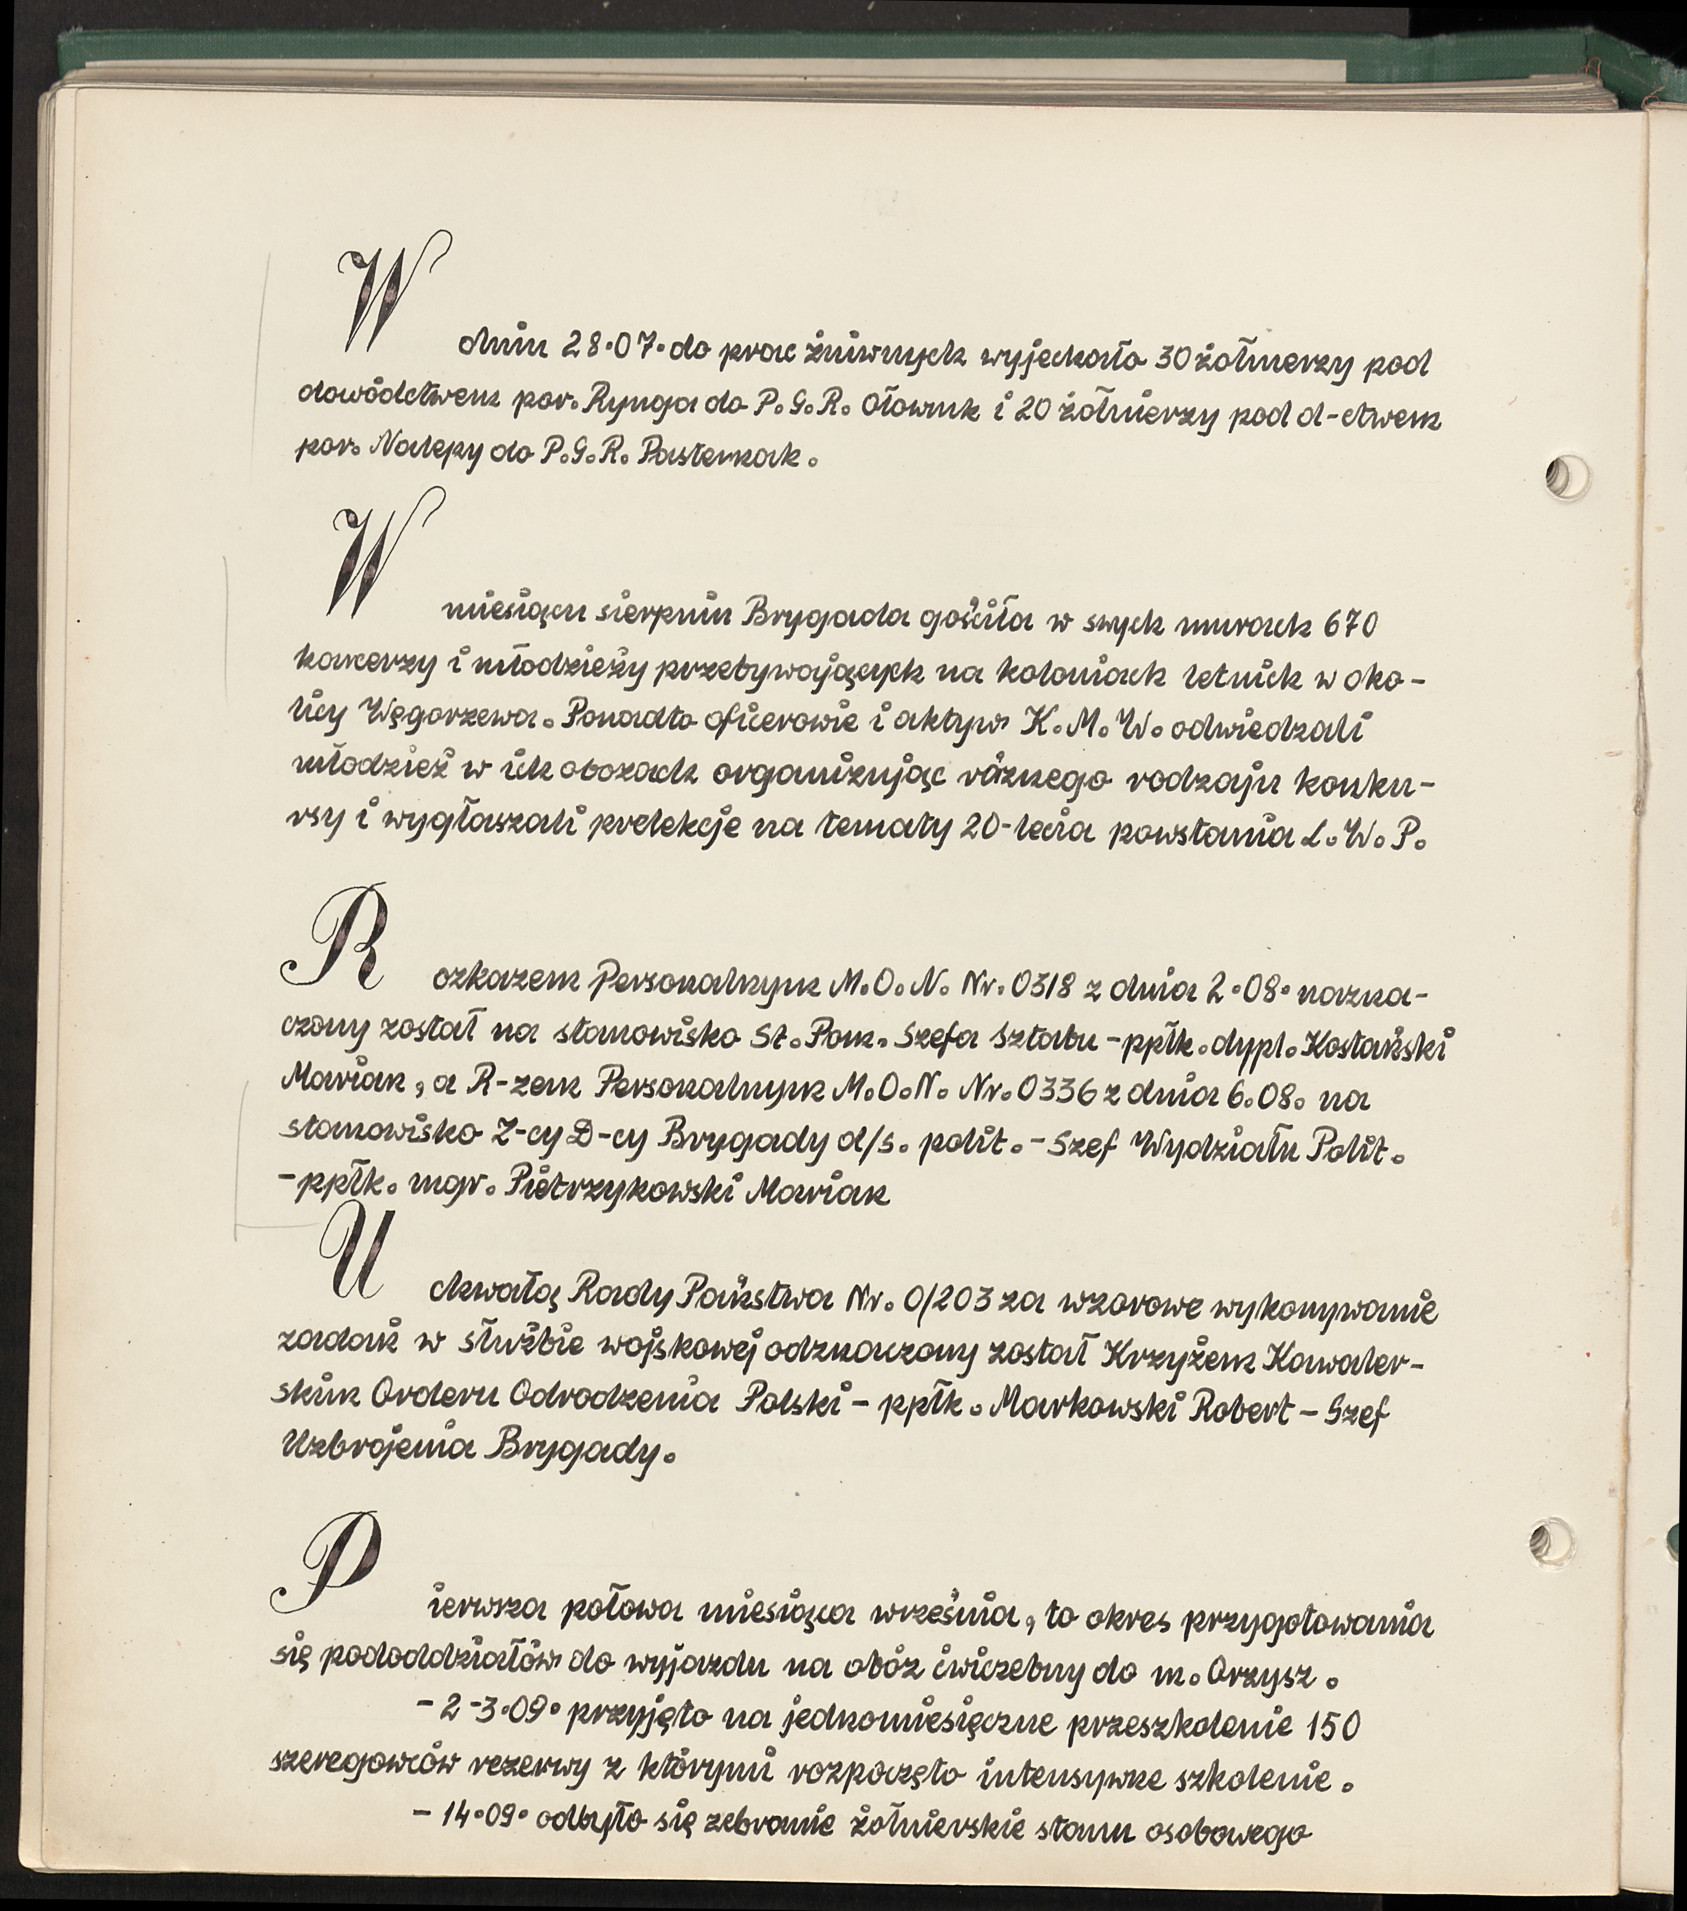 W dniu 28.07. do prac żniwnych wyjechało 30 żołnierzy pod
dowództwem por. Rynga do P.G.R. Ołownik i 20 żołnierzy pod d-ctwem
por. Nalepy do P.G.R. Pasternak.
W miesiącu sierpniu Brygada gościła w swych murach 670
harcerzy i młodzieży przebywających na koloniach letnich w oko-
licy Węgorzewa. Ponadto oficerowie i aktyw K.M.W. odwiedzali
młodzież w ich obozach organizując różnego rodzaju konku-
rsy i wygłaszali prelekcje na tematy 20-lecia powstania L.W.P.
Rozkazem Personalnym M.O.N. Nr. 0318 z dnia 2.08. nazna-
czony został na stanowisko St. Pom. Szefa Sztabu - ppłk. dypl. Kostański
Marian, a R-zem Personalnym M.O.N. Nr. 0336 z dnia 6.08. na
stanowisko Z-cy D-cy Brygady d/s. polit. - Szef Wydziału Polit.
- ppłk. mgr. Pietrzykowski Marian
Uchwałą Rady Państwa Nr. 0/203 za wzorowe wykonywanie
zadań w służbie wojskowej odznaczony został Krzyżem Kawaler-
skim Orderu Odrodzenia Polski - ppłk. Markowski Robert - Szef
Uzbrojenia Brygady.
Pierwsza połowa miesiąca września, to okres przygotowania
się pododdziałów do wyjazdu na obóz ćwiczebny do m. Orzysz.
- 2-3.09. przyjęto na jednomiesięczne przeszkolenie 150
szeregowców rezerwy z którymi rozpoczęto intensywne szkolenie.
- 14.09. odbyło się zebranie żołnierskie stanu osobowego